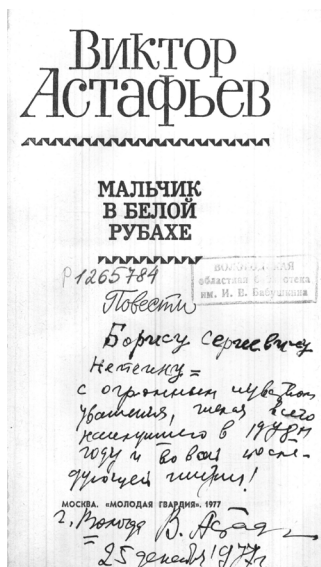 Виктор
Астафьев
МАЛЬЧИК
В БЕЛОЙ
РУБАХЕ
Р1265784
ВОЛОГОДСКАЯ
областная библиотека
им. И. В. Бабушкина
Повести
Борису Сергеевичу
с огромным чувством
уважения, желая всего
наилучшего в 1978м
году и во всей после-
дующей жизни!
МОСКВА. «МОЛОДАЯ ГВАРДИЯ». 1977
г. Вологда В. Астаф
25 декабря 1977г